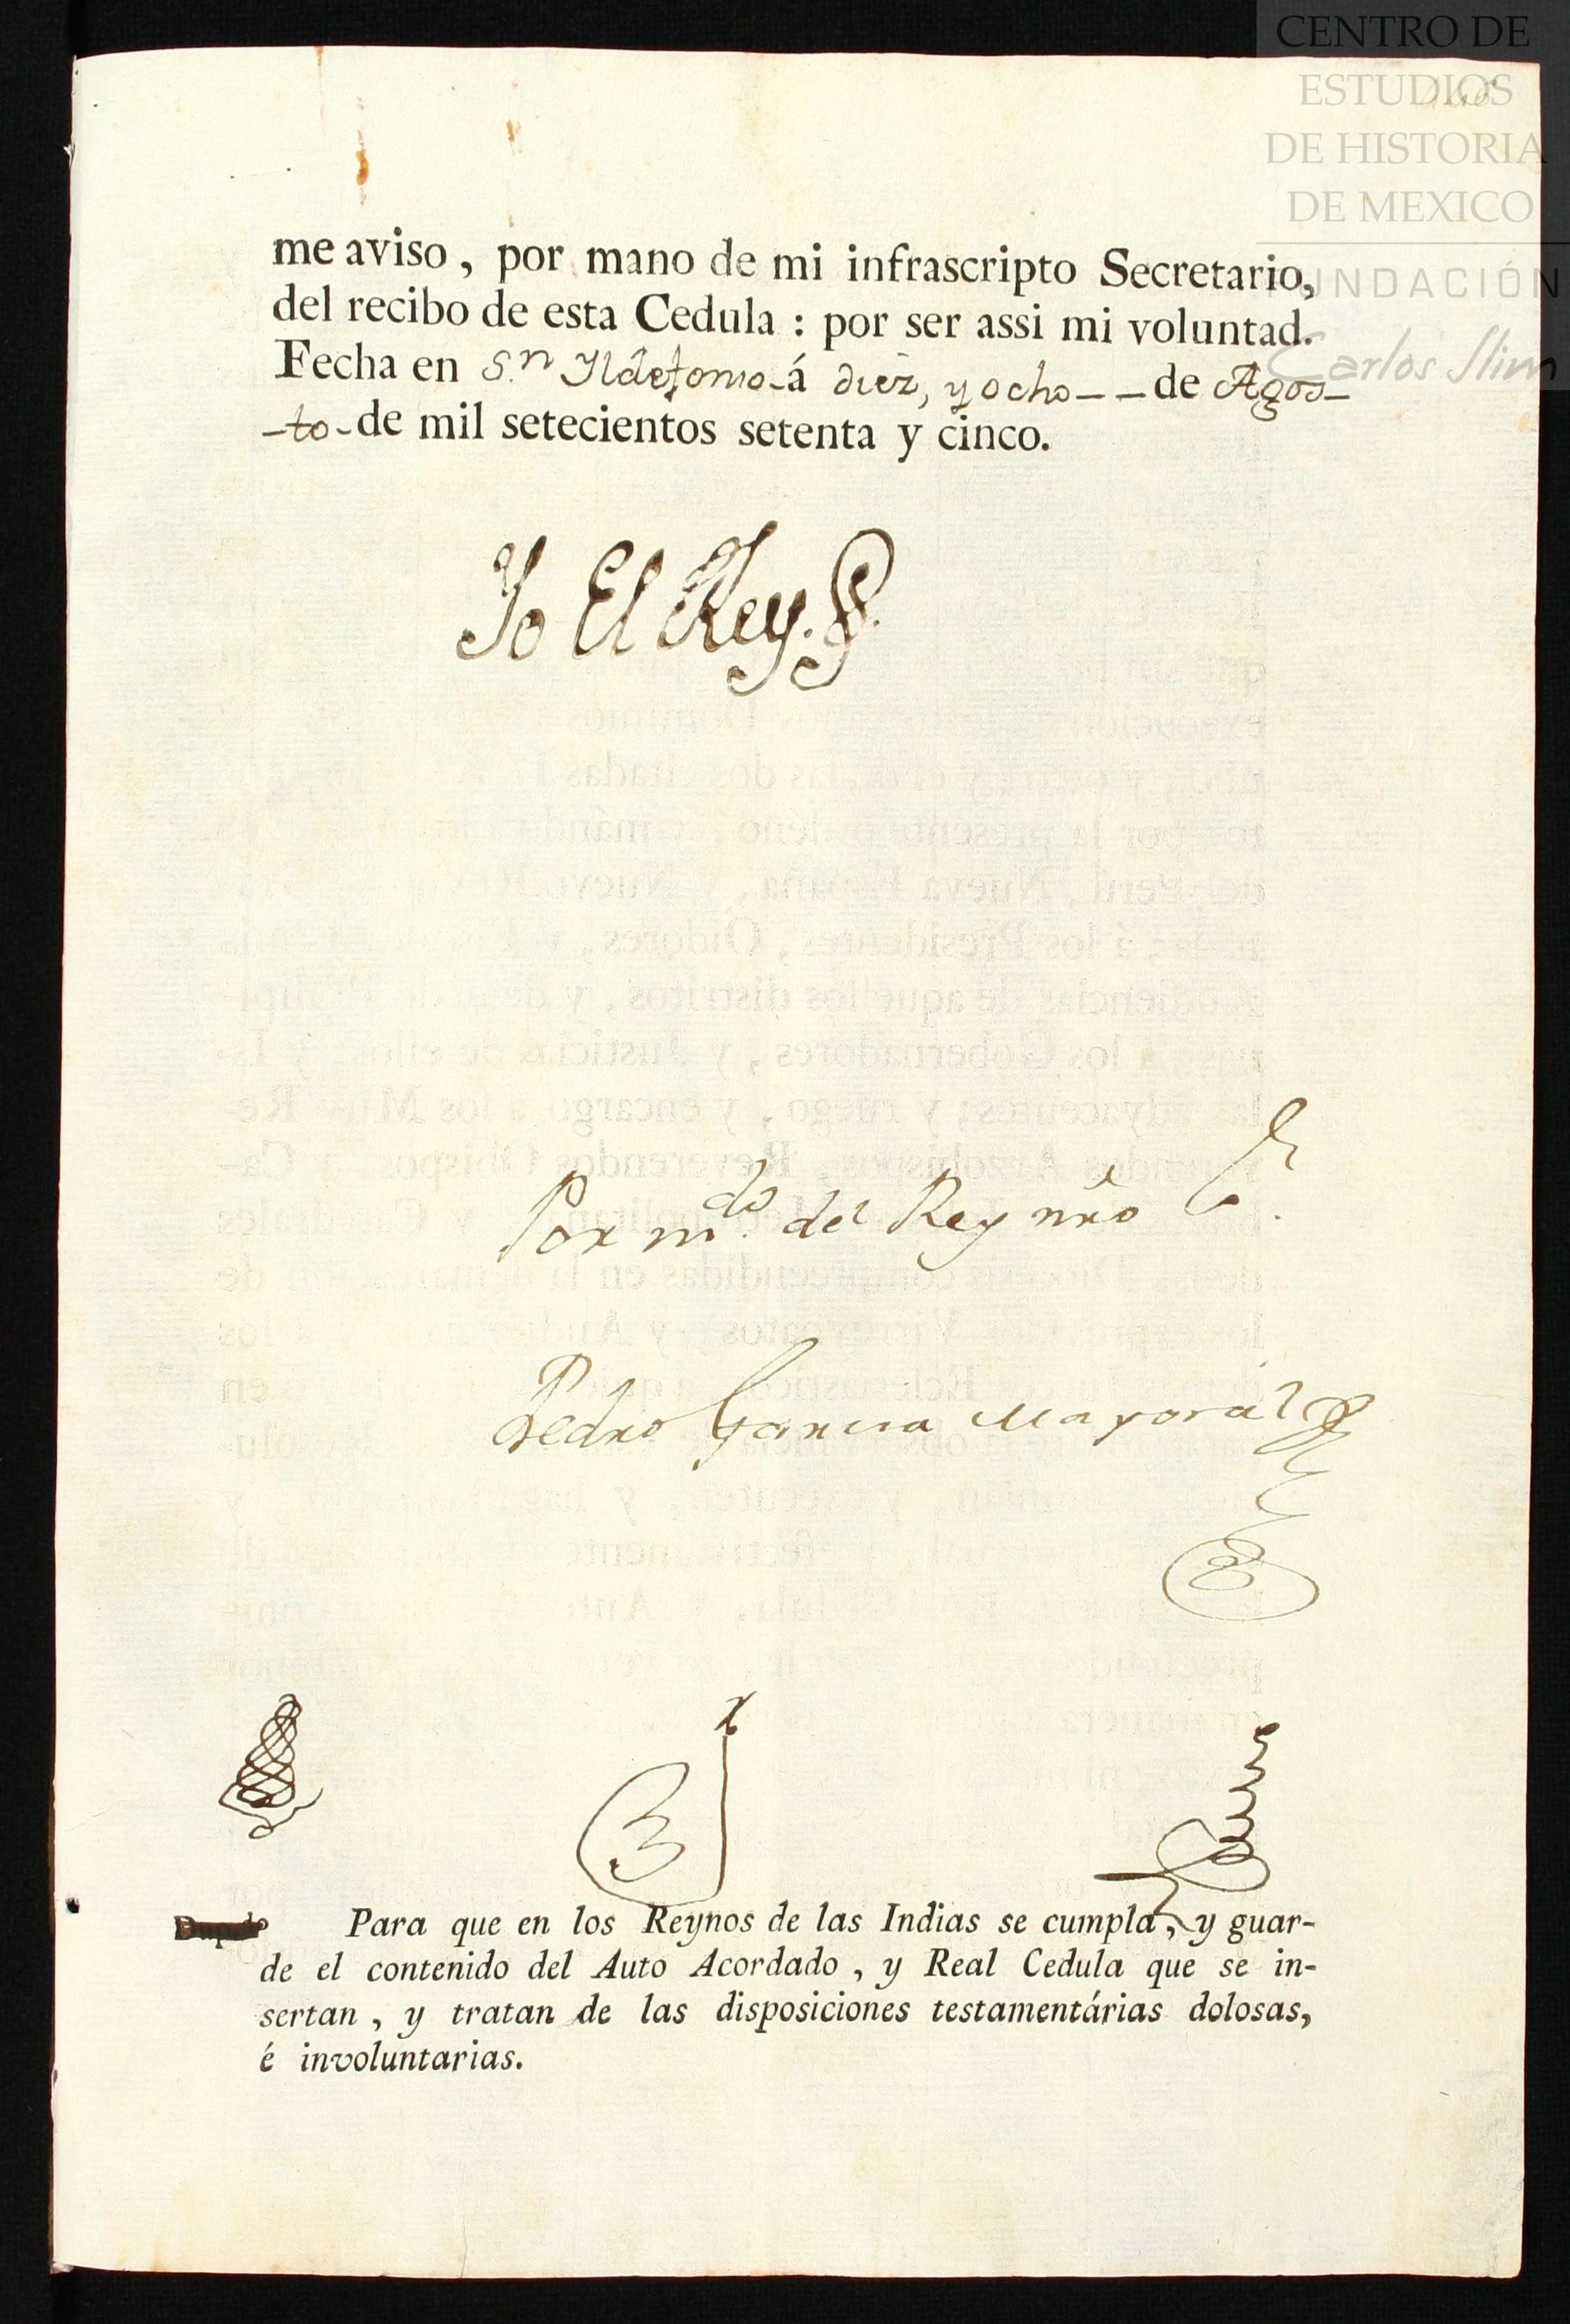 CENTRO DE
ESTUDIOS
DE HISTORIA
DE MEXICO
FUNDACIÓN
Carlos Slim
me aviso, por mano de mi infrascripto Secretario,
del recibo de esta Cedula : por ser assi mi voluntad.
Fecha en S.n Yldefonso á diez, y ocho de Agos-
-to de mil setecientos setenta y cinco.
Yo El Rey.
Por m.do del Rey nro S.r
Pedro Garcia Mayoral
Para que en los Reynos de las Indias se cumpla, y guar-
de el contenido del Auto Acordado, y Real Cedula que se in-
sertan, y tratan de las disposiciones testamentárias dolosas,
é involuntarias.